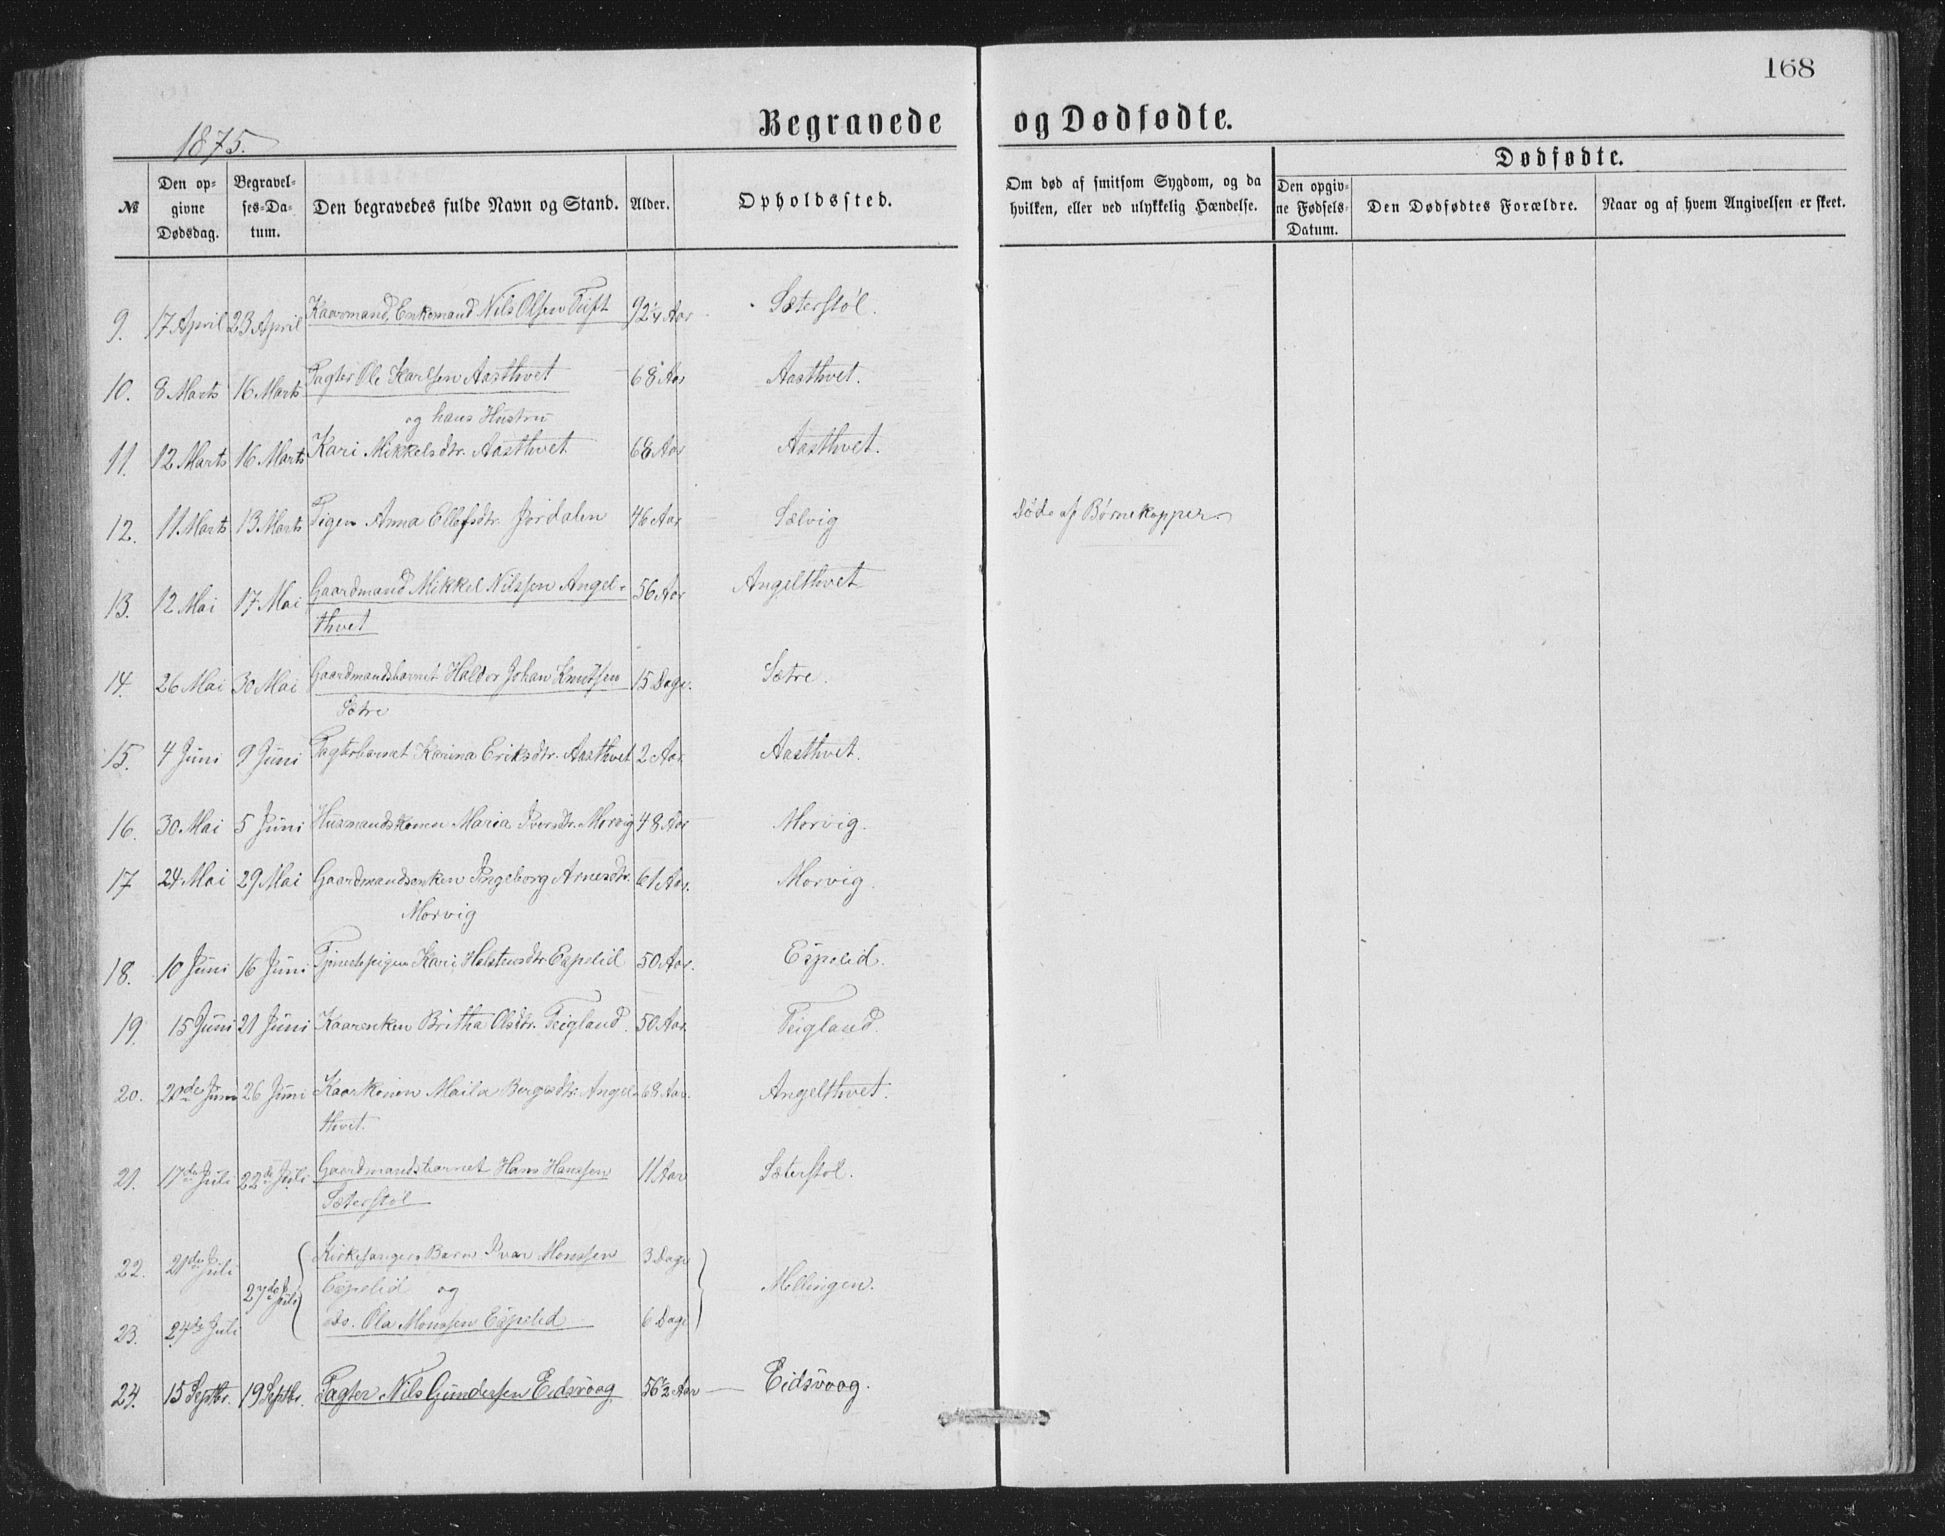 168
1875.
Begravede og Dødfødte.
№
Den op-
givne
Dødsdag.
Begravel-
ses-Da-
tum.
Den begravedes fulde Navn og Stand.
Alder.
Opholdssted.
Om død af smitsom Sygdom, og da
hvilken, eller ved ulykkelig Hændelse.
Dødfødte.
Den opgiv-
ne Fødsels-
Datum.
Den Dødfødtes Forældre.
Naar og af hvem Angivelsen er skeet.
9. 17 April 23 April Kaarmand, Enkemand Nils Olsen Tuft 92 1/4 Aar Sæterstøl.
10. 8 Marts 16 Marts Pagter Ole Karlsen Aasthvet 68 Aar Aasthvet.
og hans Hustru
11. 12 Marts 16 Marts Kari Mikkelsdtr. Aasthvet 68 Aar Aasthvet.
12. 11 Marts 13 Marts Pigen Anna Ellefsdtr. Jordalen 46 Aar Sælvig Døde af Børnekopper.
13. 12 Mai 17 Mai Gaardmand Mikkel Nilssen Angel- 56 Aar Angelthvet
thvet
14. 26 Mai 30 Mai Gaardmandsbarnet Haldor Johan Knutsen 15 Dage. Sætre.
Sætre
15. 4 Juni 9 Juni Pagterbarnet Karina Eriksdtr. Aasthvet 2 Aar. Aasthvet.
16. 30 Mai 5 Juni Husmandskonen Maria Iversdtr. Morvig 48 Aar Morvig.
17 24 Mai 29 Mai Gaardmandsenken Ingeborg Arnesdtr. 61 Aar. Morvig.
Morvig
18. 10 Juni 16 Juni Tjenestepigen Kari Halstensdtr Espelid 50 Aar. Espelid.
19. 15 Juni 21 Juni Kaarenken Britha Olsdtr. Teigland. 50 Aar. Teigland.
20. 20de Juni 26 Juni Kaarkonen Maila Bergesdtr. Angel- 68 Aar. Angelthvet.
thvet.
21. 17de Juli 22de Juli Gaardmandsbarnet Hans Hanssen 11 Aar Sæterstøl.
Sæterstøl
22. 21de Juli Kirkesangers Barn Ivar Monssen 3 Dage
27de Juli Espelid og Mellingen.
23. 24de Juli Do. Ola Monssen Espelid 6 Dage
24. 15 Septbr. 19 Septbr. Pagter Nils Gundersen Eidsvaag 56 1/2 Aar Eidsvaag.